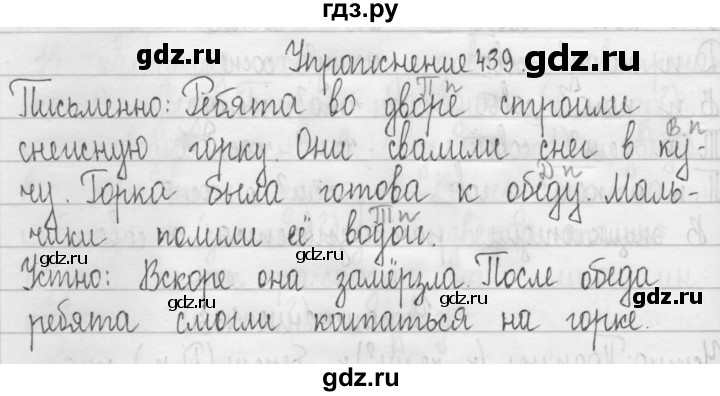 гдз.ру
Упражнение 439.
gdz.ru gdz.ru
П п
Письменно: Ребята во дворе строили
В.п
снежную горку. Они свалили снег в ку-
Д п
чу. Горка была готова к обеду. Маль-
Т п
чики полили её водой.
gdz.ru gdz.ru
Устно: Вскоре она замёрзла. После обеда
gdz.ru gdz.ru
ребята смогли кататься на горке.
gdz.ru